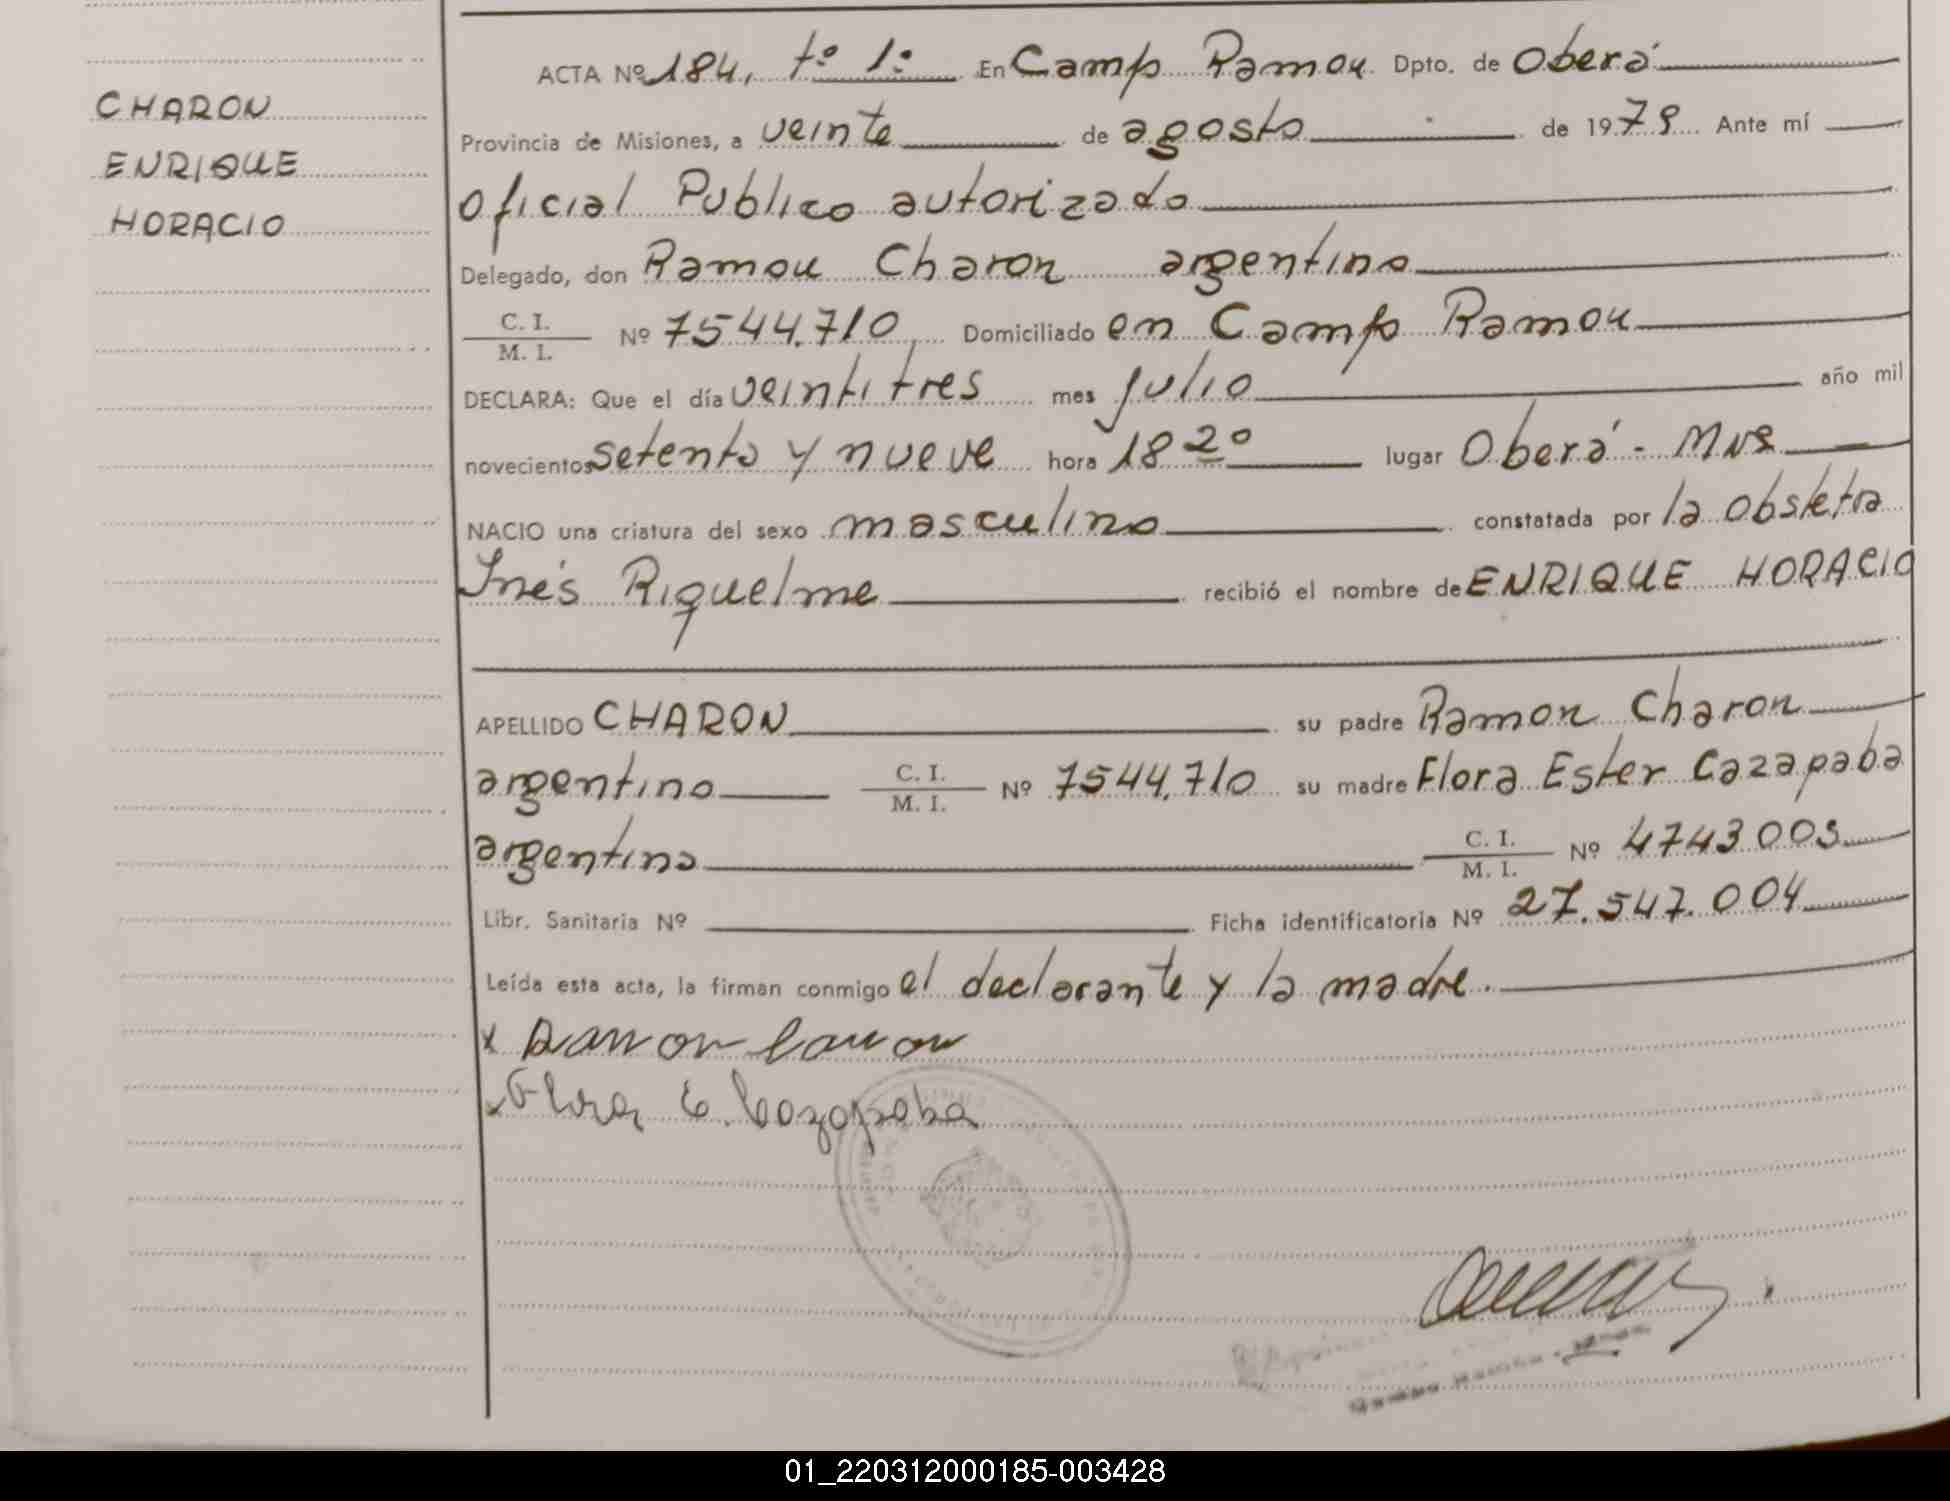 CHARON
ENRIQUE
HORACIO
ACTA Nº 184, tº 1º En Camp Ramon Dpto. de Oberá
Provincia de Misiones, a veinte de agosto de 1979 Ante mí
Oficial Publico autorizado
Delegado, don Ramon Charon argentino
C. I.
M. I. Nº 7544.710 Domiciliado en Camp Ramon
DECLARA: Que el día veintitres mes julio año mil
novecientos setenta y nueve hora 18 20 lugar Oberá - Mns
NACIO una criatura del sexo masculino constatada por la obstetra
Inés Riquelme recibió el nombre de ENRIQUE HORACIO
APELLIDO CHARON su padre Ramon Charon
argentino C. I.
M. I. Nº 7544.710 su madre Flora Ester Cazapaba
argentina C. I.
M. I. Nº 4743003
Libr. Sanitaria Nº Ficha identificatoria Nº 27.547.004
Leída esta acta, la firman conmigo el declarante y la madre.
x Ramon
x Flora E. Cazapaba
01_220312000185-003428